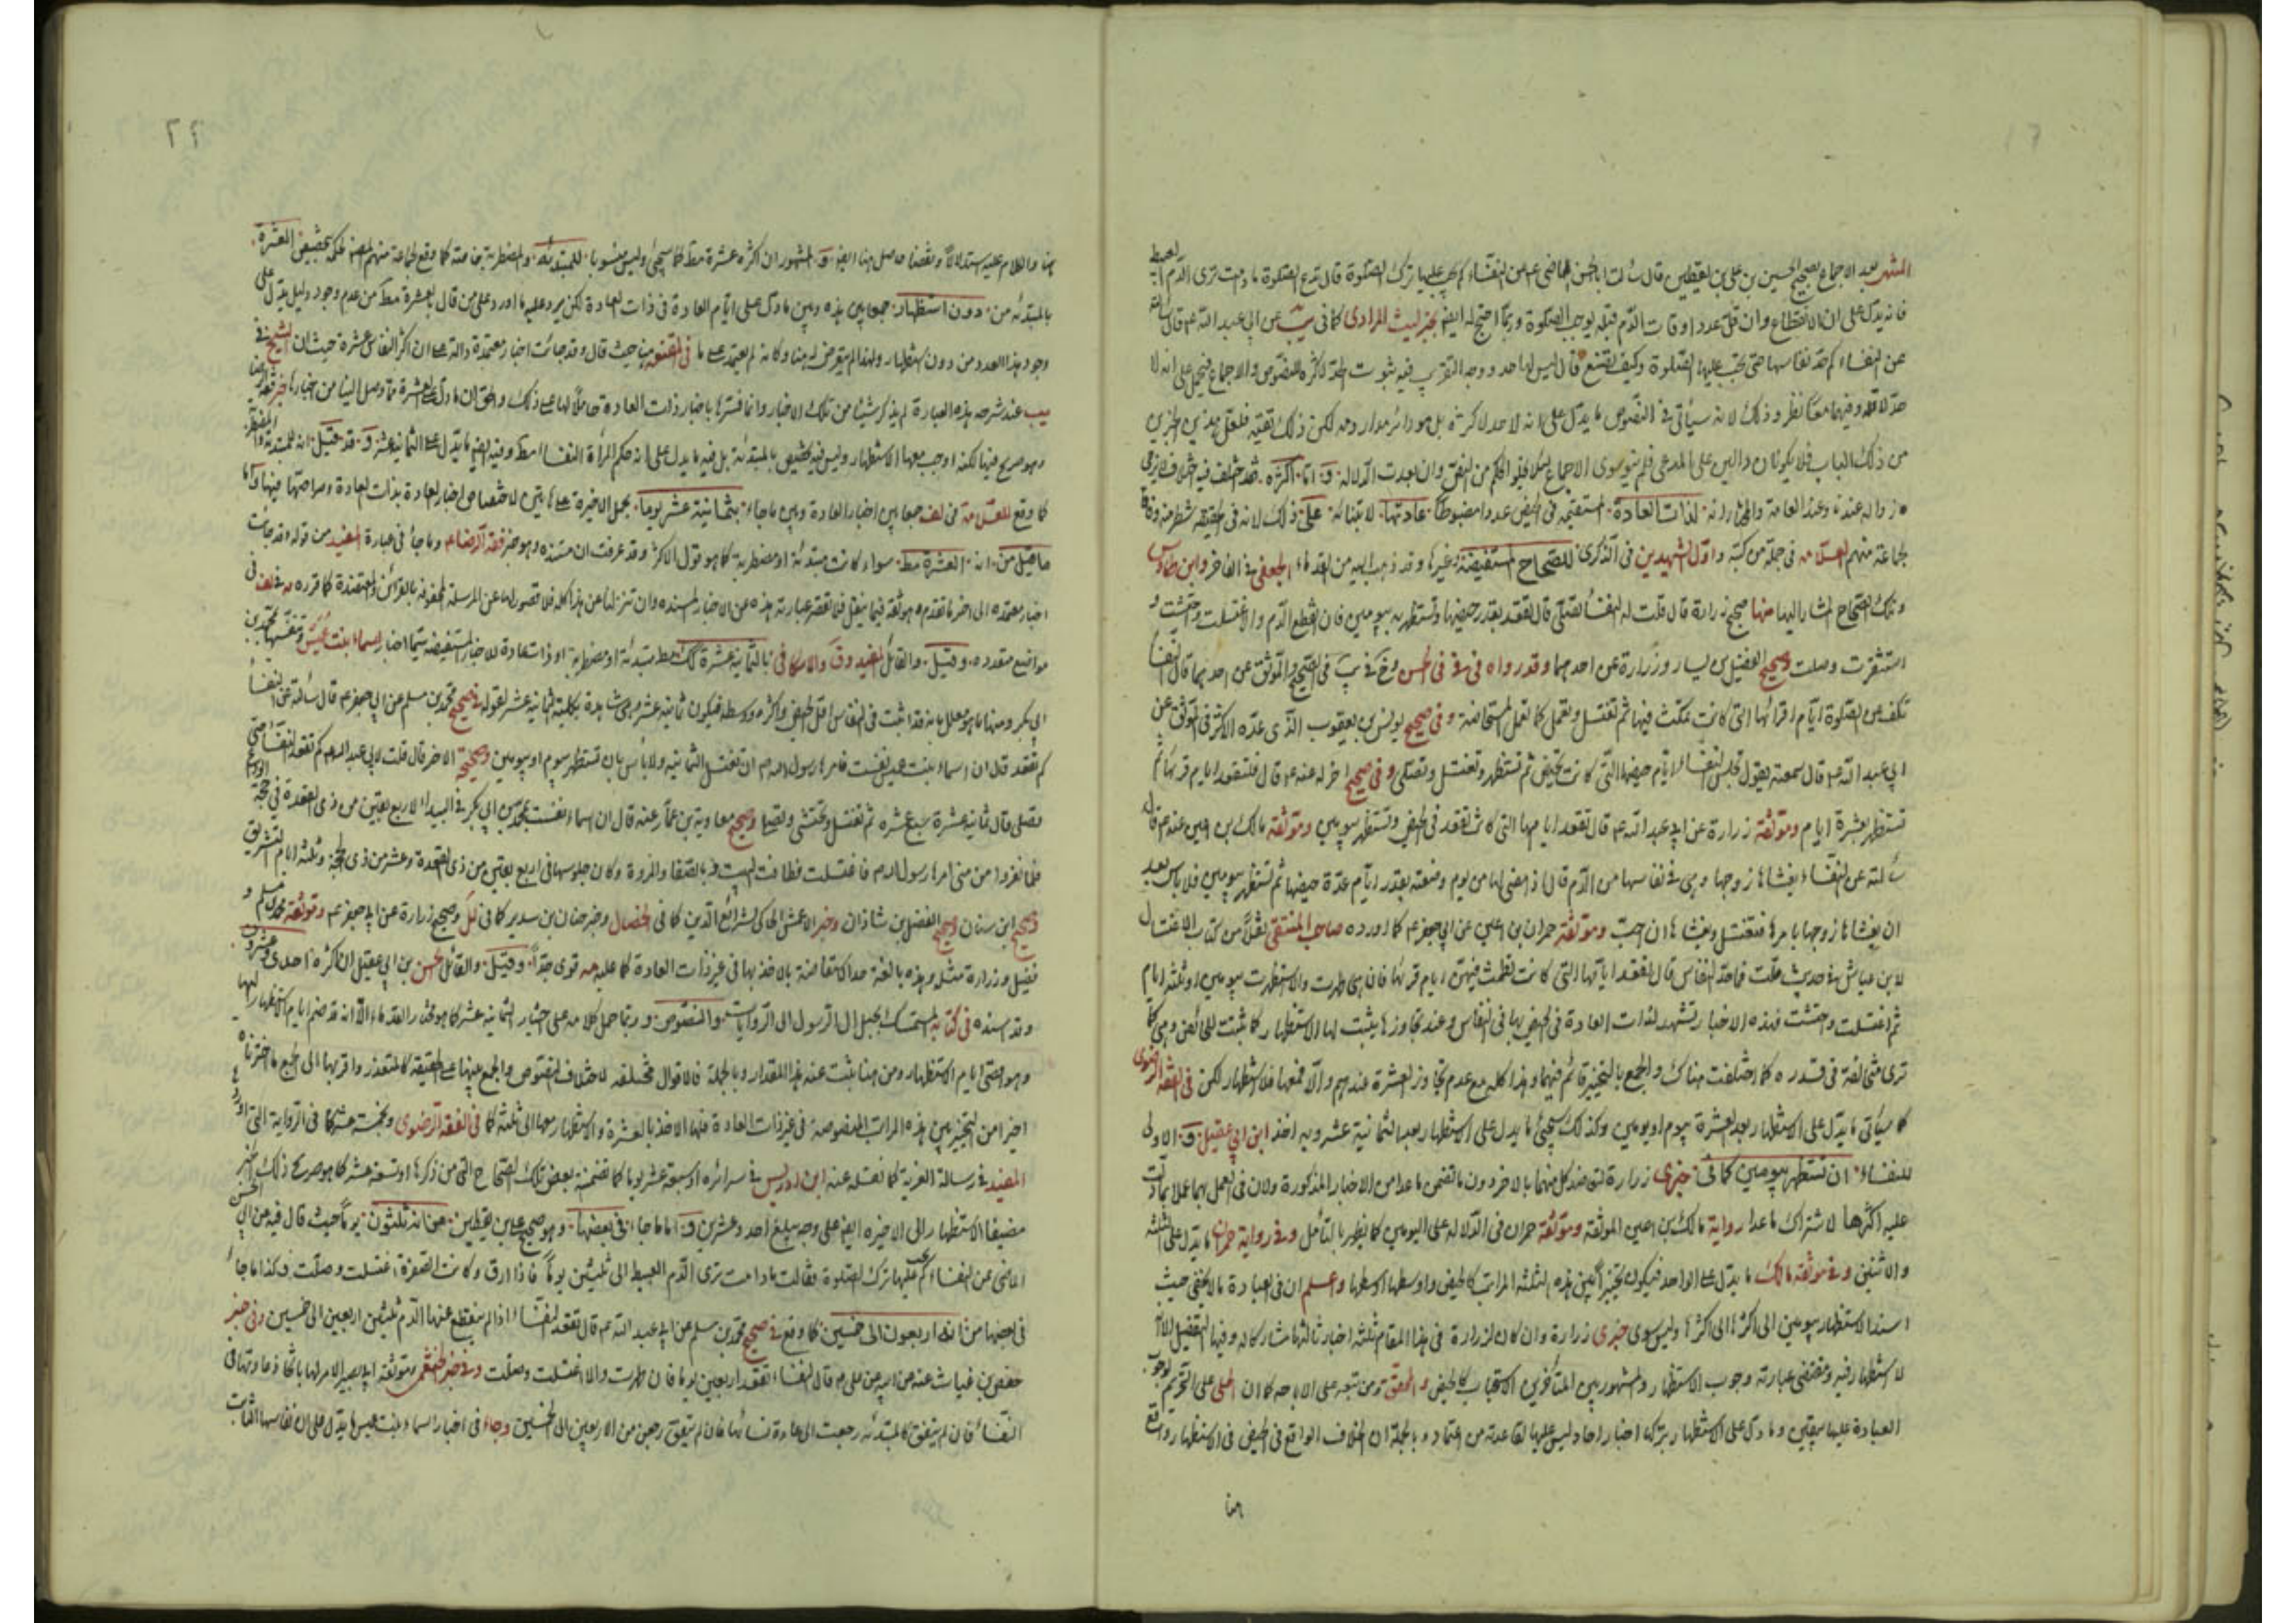 المشهور بعد الاجماع بصحيح الحسين بن علي بن يقطين قال سألت ابا الحسن الماضي ع عن النفساء كم يجب عليها ترك الصلوة قال تدع الصلوة ما دامت ترى الدم العبيط
فانه يدل على ان الانقطاع وان قل عدد اوقات الدم قبله يوجب الصلوة وربما احتج له ايضا بخبر ليث المرادى كما في يب عن ابي عبد الله ع قال سألته
عن النفساء كم حد نفاسها حتى يجب عليها الصلوة وكيف تصنع قال ليس لها حد ووجه التقريب فيه ثبوت الحد لاكثره بالنصوص والاجماع فيحمل على انه لا
حد لاقله وفيهما معا نظر وذلك لانه سيأتي في النصوص ما يدل على انه لا حد لاكثره بل هو دائر مدار وجه لكن ذلك لتقية فلعل هذين الخبرين
من ذلك الباب فلا يكونان دالين على المدعى فلم يبق سوى الاجماع لئلا يخلو الحكم من النص وان بعدت الدلالة و اما اكثره فقد اختلف فيه
زواله عندنا وعند العامة والمختار انه لذات العادة المستقيمة في الحيض عددا مضبوطا عادتها لابتنائه على ذلك لانه في الحقيقة شطر منه وفاقا
لجماعة منهم العلامه في جملة من كتبه واول الشهيدين في الذكرى للصحاح المستفيضة وغيرها وقد ذهب اليه من القدماء الجعفي في الفاخر وابن طاوس
وتلك الصحاح المشار اليها منها صحيح زرارة قال قلت له النفساء متى تصلى قال تقعد بقدر حيضها وتستظهر بيومين فان انقطع الدم والا اغتسلت واحتشت و
استثفرت وصلت وصحيح الفضيل بن يسار وزرارة عن احدهما وقد رواه في في في الحسن وفي يب في الصحيح والموثق عن احدهما قال النفساء
تكف عن الصلوة ايام اقرائها التي كانت تمكث فيها ثم تغتسل وتعمل كما تعمل المستحاضة وفي صحيح يونس بن يعقوب الذى عده الاكثر في الموثق عن
ابي عبد الله ع قال سمعته يقول تجلس النفساء ايام حيضها التي كانت تحيض ثم تستظهر وتغتسل وتصلى وفي صحيح اخر له عنه ع قال فلتقعد ايام قرئها ثم
تستظهر بعشرة ايام وموثقة زرارة عن ابي عبد الله ع قال تقعد ايامها التي كانت تقعد في الحيض وتستظهر بيومين وموثقة مالك بن اعين عنه ع قال
سألته عن النفساء يغشاها زوجها وهي في نفاسها من الدم قال اذ مضى لها من يوم وضعته بقدر ايام عدة حيضها ثم تستظهر بيومين فلا باس بعد
ان يغشاها زوجها يامرها فتغتسل ويغشاها ان احب وموثقة حمران بن اعين عن ابي جعفر ع كما اورده صاحب المنتقى نقلا من كتاب الاغتسال
لابن عياش في حديث قلت فما حد النفاس قال تقعد ايامها التي كانت تطمث فيهن ايام قرئها فان هي طهرت والا استظهرت بيومين او ثلثة ايام
ثم اغتسلت واحتشت فهذه الاخبار تشهد لذات العادة في الحيض بها في النفاس وعند تجاوزها يثبت لها الاستظهار كما ثبت للحائض وهي كما
ترى مختلفة في قدره كما اختلفت هناك والجمع بالتخيير قائم فيهما وهذا كله مع عدم تجاوز العشرة عندهم والا فمعها فلا استظهار لكن في الفقه الرضوى
كما سيأتي ما يدل على الاستظهار بعد العشرة بيوم او يومين وكذلك سيجئ ما يدل على استظهار بعد الثمانية عشر وبه اخذ ابن ابي عقيل و الاولى
للنفساء ان تستظهر بيومين كما في خبرى زرارة لتعاضد كل منهما بالاخر دون ما تضمن ما عدا من الاخبار المذكورة ولان في العمل بهما عملا بما دلت
عليه اكثرها لاشتراك ما عدا رواية مالك بن اعين الموثقة وموثقة حمران في الدلالة على اليومين كما يظهر بالتأمل وفي رواية حمران ما يدل على الثلثة
والاثنين وفي موثقة مالك ما يدل على الواحد فيكون تخييرا بين هذه الثلثة المراتب كالحيض واوسطها اوسطها واعلم ان في العبارة ما لا يخفى حيث
اسند الاستظهار بيومين الى اكثرها الى اكثرها وليس سوى خبرى زرارة وان كان لزرارة في هذا المقام ثلثة اخبار ثالثها مشاركا له وفيها التفصيل الا انه
لا استظهار فيه ومقتضى عبارته وجوب الاستظهار والمشهور بين المتأخرين الاستحباب كالحيض و المحقق ومن تبعه على الاباحه كما ان المحلى على التحريم لوجوب
العبادة عليها بيقين وما دل على الاستظهار بترك اخبار احاد ليس عليها لقاعدته من اعتماد وبالجملة ان الخلاف الواقع في الحيض في الاستظهار واقع
هنا
هنا والكلام عليه استدلالا ونقضا حاصل هنا ايضا و المشهور ان اكثره عشرة مط كما سيجئ وليس منسوبا للمبتدئه والمضطربة خاصة كما وقع لجماعة منهم المص لحكمه بتخصيص العشرة
بالمبتدئه من دون استظهار جمعا بين هذه وبين ما دل على ايام العادة في ذات العادة لكن يرد عليه ما اورد على من قال بالعشرة مط من عدم وجود دليل يدل على
وجود هذا العدد من دون استظهار ولهذا لم يتعرض له هنا وكانه لم يعتمد على ما في المقنعه حيث قال وقد جائت اخبار معتمدة دالة على ان اكثر النفاس عشرة حيث ان الشيخ في
يب عند شرحه هذه العبارة لم يذكر شيئا من تلك الاخبار وانما فسرها باخبار ذات العادة حاملا لها على ذلك والحق ان ما دل على العشرة مما وصل الينا من اخبارها خبر فقه الرضا
وهو صريح فيها لكنه اوجب معها الاستظهار وليس فيه تخصيص بالمبتدئة بل فيه ما يدل على انه حكم المرأة النفساء مط وفيه ايضا ما يدل على الثمانية عشر و قد قيل انه للمبتدئه والمضطربه
كما وقع للعلامة في لف جمعا بين اخبار العادة وبين ما جاء بثمانية عشر يوما بحمل الاخيرة على هاتين لاختصاص اخبار العادة بذات العادة وصراحتها فيها واما
ما قيل من انه العشرة مط سواء كانت مبتدئة او مضطربة كما هو قول الاكثر وقد عرفت ان مستنده هو خبر فقه الرضا ع وما جاء في عبارة المفيد من قوله وقد جائت
اخبار معتمده الى اخر ما تقدم وهو ثقة فيما ينقل فلا تقصر عبارته هذه عن الاخبار المسنده وان تنزلنا عن هذا كله فلا قصور لها عن المرسلة المحفوفة بالقرائن والمعتضدة كما قرره في لف في
مواضع متعدده وقيل والقائل المفيد وق والاسكافي بالثمانية عشرة مط مبتدئة او مضطربة او ذات عادة للاخبار المستفيضة سيما اخبار اسماء بنت عميس وتنفسها بمحمد بن
ابي بكر ومنها ما هو معلل بانه قد اثبت في النفاس اقل الحيض واكثره ووسطه فيكون ثمانية عشر وهي شاهدة بكلية الثمانية عشر لقوله في صحيح محمد بن مسلم عن ابي جعفر ع قال سألته عن النفساء
كم تقعد قال ان اسماء بنت عميس نفست فامرها رسول الله ص ان تغتسل لثمانية ولا باس بان تستظهر بيوم او يومين وصحيحه الاخر قال قلت لابي عبد الله ع كم تقعد النفساء حتى
تصلى قال ثمانية عشرة سبع عشره ثم تغتسل وتحتشى وتصلى وصحيح معاوية بن عمار عنه قال ان اسماء نفست بمحمد بن ابي بكر في البيداء لاربع بقين من ذى القعدة في حجة الوداع
فلما نفروا من منى امرها رسول الله ص فاغتسلت فطافت بالبيت وبالصفا والمروة وكان جلوسها في اربع بقين من ذى القعدة وعشر من ذى الحجة وثلثة ايام التشريق
وصحيح ابن سنان وصحيح الفضل بن شاذان وخبر الاعمش الحاكي لشرائع الدين كما في الخصال وخبر حنان بن سدير كما في لل وصحيح زرارة عن ابي جعفر ع وموثقة محمد بن مسلم و
فضيل وزرارة مثله وهذه بالغة حد الاستفاضة بالاخذ بها في غير ذات العادة كما عليه مه قوى جدا وقيل والقائل حسن بن ابي عقيل ان اكثره احدى وعشرون
وقد اسنده في كتابه المتمسك بحبل ال الرسول الى الروايات والنصوص وربما حمل كلامه على اختيار الثمانية عشر كما هو مختار القدماء الا انه قد ضم ايام الاستظهار اليها
وهو اقصى ايام الاستظهار ومن هنا يثبت عنه هذا المقدار وبالجملة فالاقوال مختلفه لاختلاف النصوص والجمع بينها على الحقيقة كالمتعذر واقربها الى الجمع ما اخترناه
اخيرا من التخيير بين هذه المراتب المنصوصة في غير ذات العادة فلها الاخذ بالعشرة والاستظهار معها الى ثلثة كما في الفقه الرضوى وبخمسة عشر كما في الرواية التي اوردها
المفيد في رسالة العزية كما نقله عنه ابن ادريس في سرائره او سبعة عشر يوما كما تضمنه بعض تلك الصحاح التي مر ذكرها او تسعة عشر كما هو صريح ذلك الخبر
مضيفا الاستظهار الى الاخيره ايضا على وجه يبلغ احد وعشرين و اما ما جاء في بعضها وهو صحيح علي بن يقطين من انه ثلثون يوما حيث قال فيه عن ابي الحسن
الماضى عن النفساء كم يجب عليها ترك الصلوة فقالت ما دامت ترى الدم العبيط الى ثلثين يوما فاذا رق وكانت الصفرة اغتسلت وصلت وكذا ما جاء
في بعضها من انه اربعون الى خمسين كما وقع في صحيح محمد بن مسلم عن ابي عبد الله ع قال تقعد النفساء اذا لم ينقطع عنها الدم ثلثين اربعين الى خمسين وفي خبر
حفص بن غياث عنه عن ابيه عن علي ع قال النفساء تقعد اربعين يوما فان طهرت والا اغتسلت وصلت وفي خبر الخثعمي وموثقة ابي بصير الامر لها باخذ عادتها في
النفساء فان لم يتفق كالمبتدئه رجعت الى عادة نسائها فان لم يتفق رجعن من الاربعين الى الخمسين وجاء في اخبار اسماء بنت عميس ما يدل على ان نفاسها الثابت